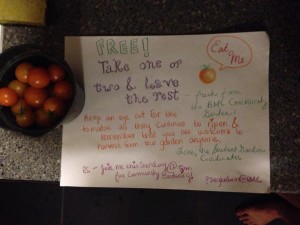 FREE!
Eat
Me
Take one or
two & leave
the rest
- fresh from
the BMC Community
Garden!
Keep an eye out for the
tomatos as they continue to ripen &
remember that you are welcome to
harvest from our garden anytime.
Love, the Student Garden
Coordinators
PS - Join me this Sunday @ 5pm
for Community